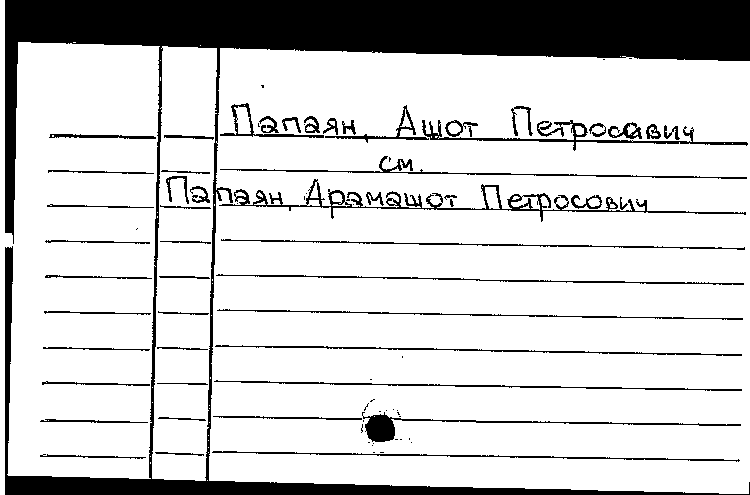 Папаян, Ашот Петросавич
см.
Папаян, Арамашот Петросович